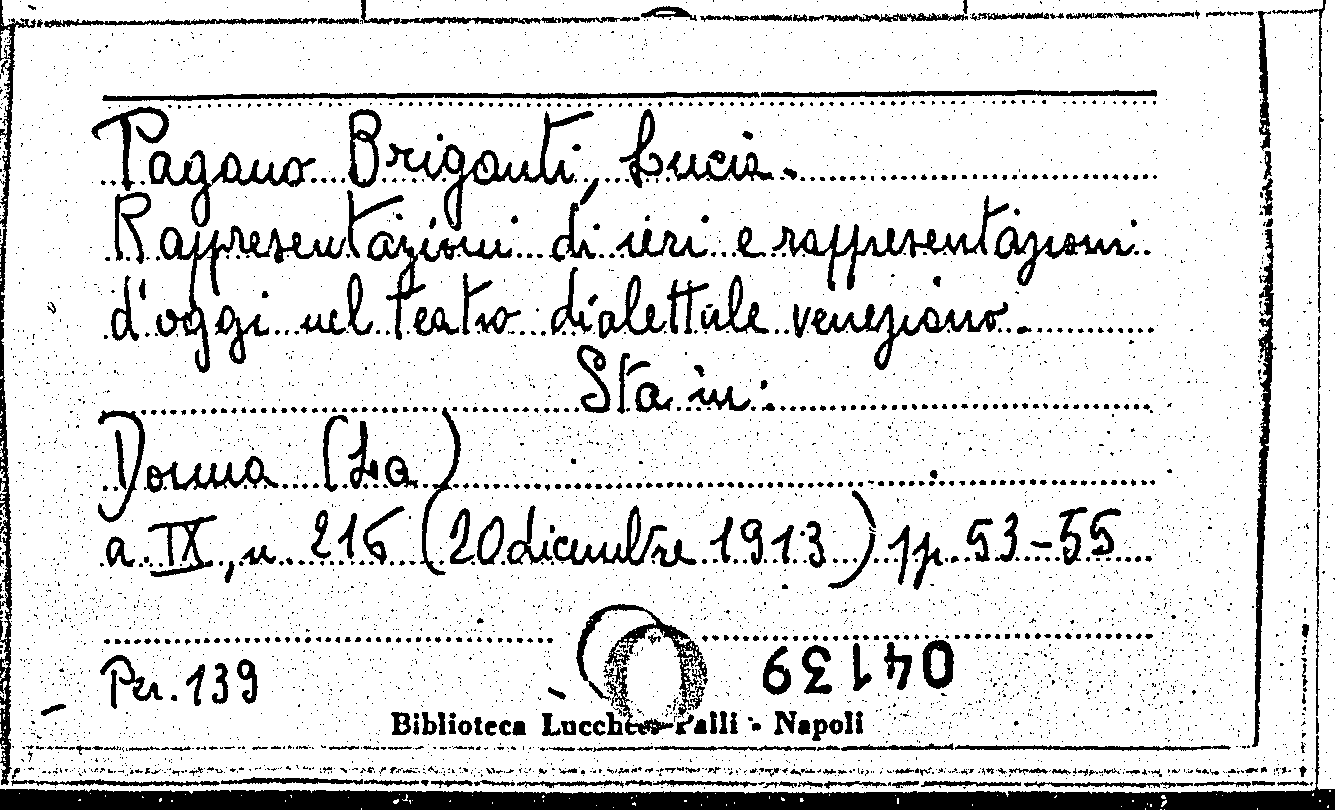 Pagano Briganti, Lucia.
Rappresentazioni di ieri e rappresentazioni
d'oggi nel teatro dialettale veneziano.
Sta in:
Donna (La)
a. IX, n. 216 (20 dicembre 1913) pp. 53-55
Per. 139
04139
Biblioteca Lucchesi-Palli - Napoli